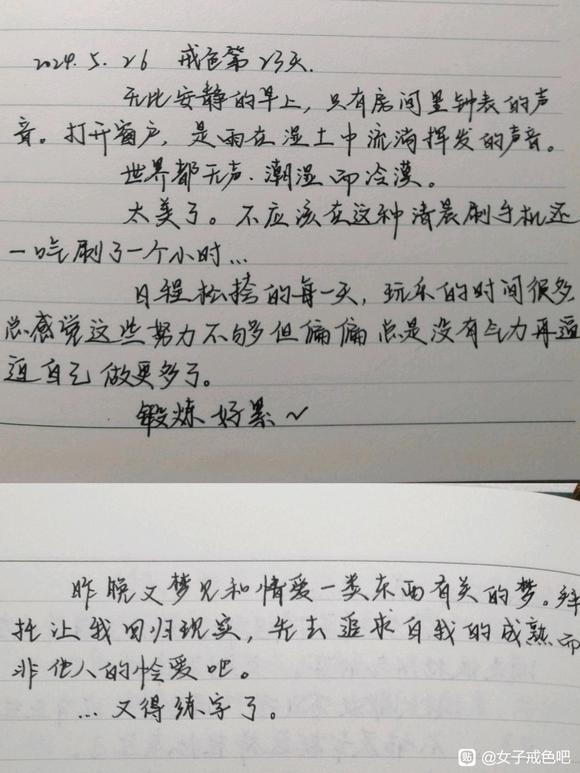 2024.5.26 戒色第23天.
无比安静的早上，只有房间里钟表的声
音。打开窗户，是雨在湿土中流淌挥发的声音。
世界都无声.潮湿而冷漠。
太美了。不应该在这种清晨刷手机还
一口气刷了一个小时…
日程松垮的每一天，玩乐的时间很多
总感觉这些努力不够但偏偏总是没有气力再逼
迫自己做更多了。
锻炼好累~
昨晚又梦见和情爱一类东西有关的梦。拜
托让我回归现实，先去追求自我的成熟而
非他人的怜爱吧。
…又得练字了。
贴 @女子戒色吧